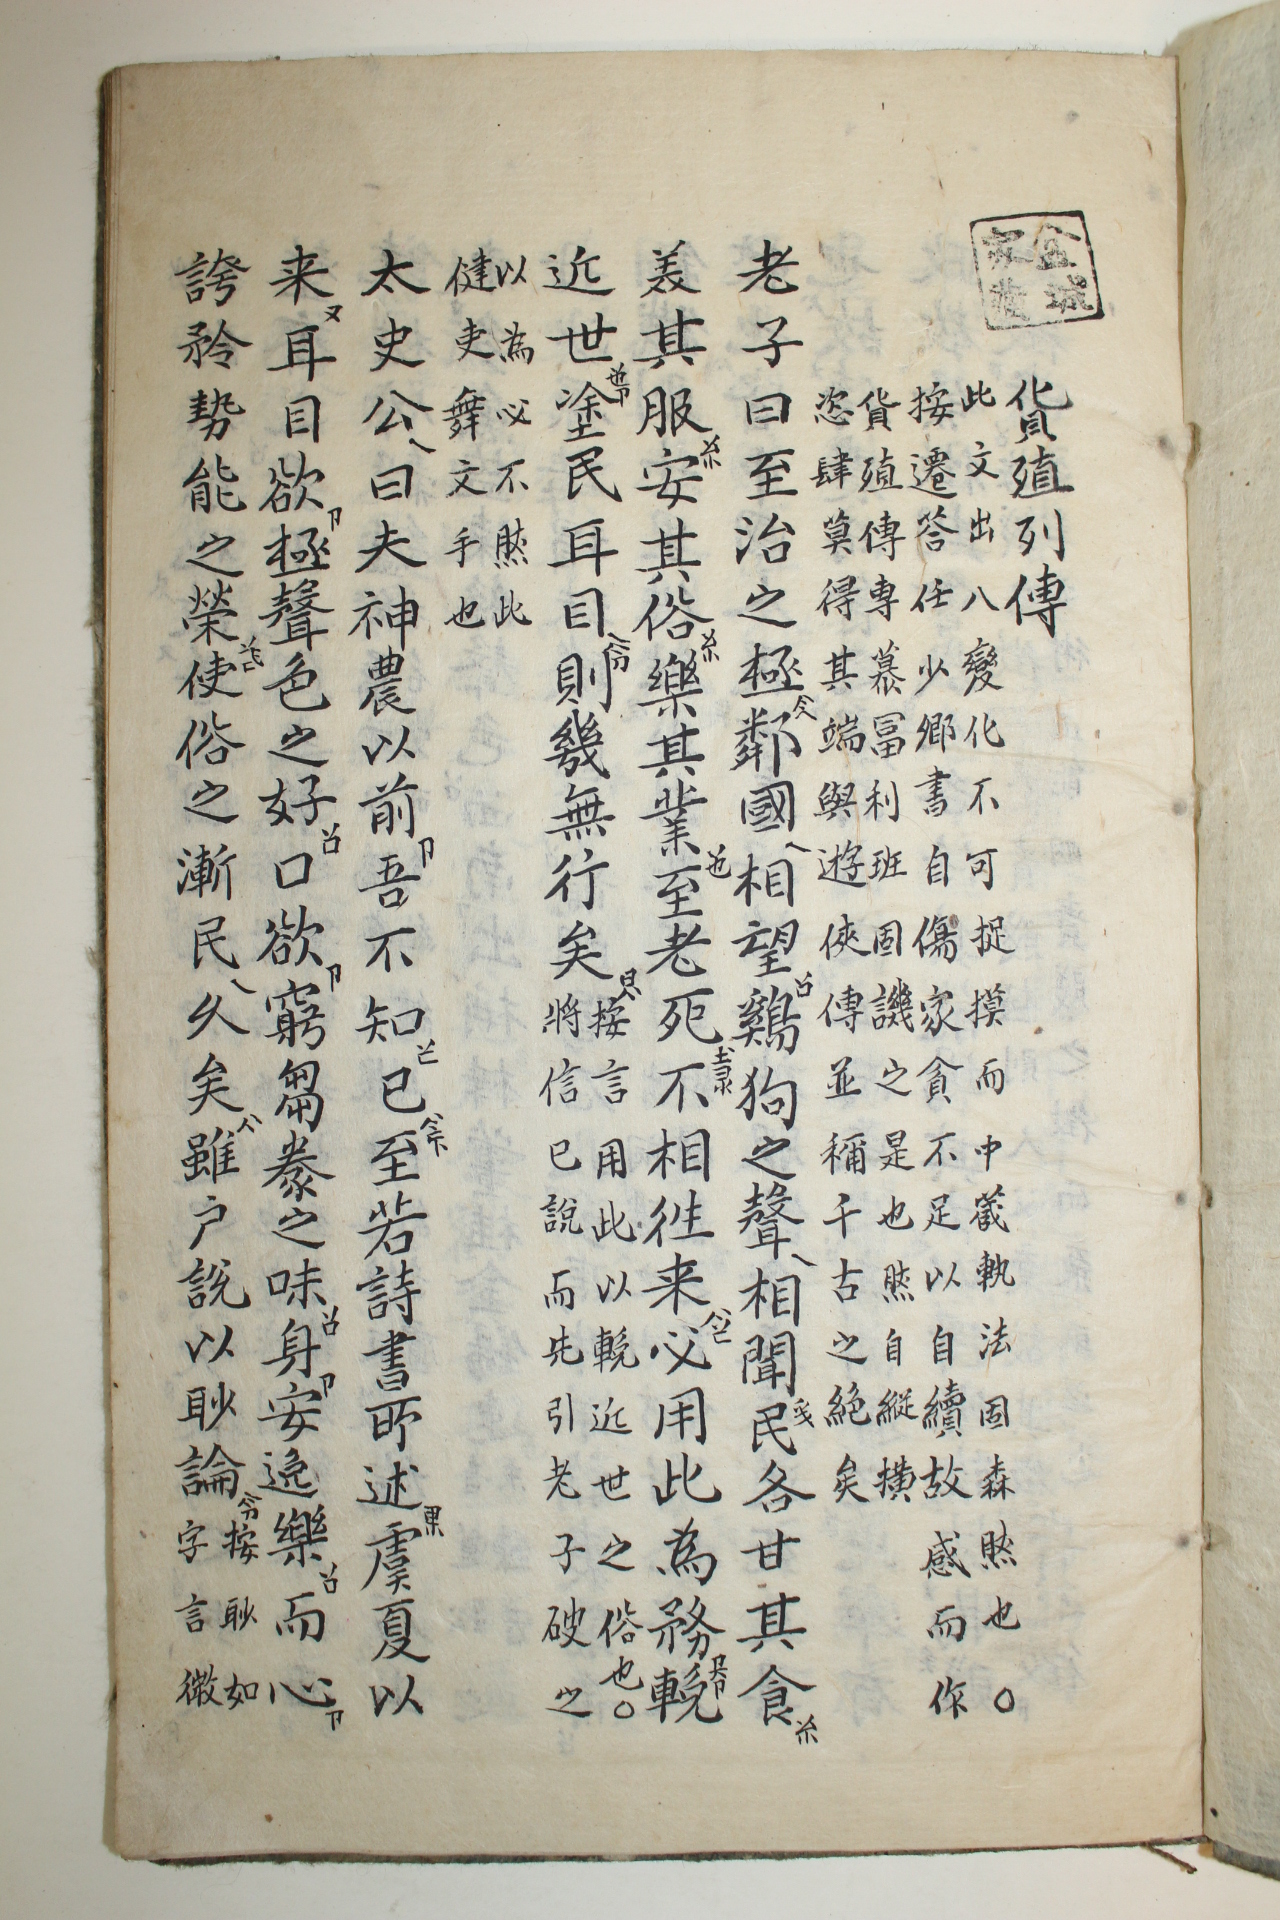 金城
貨殖列傳
此文出八變化不可捉摸而中箴執法固森然也〇
按遷答任少卿書自傷家貧不足以自續故感而作
貨殖傳專慕冨利班固譏之是也然自縱橫
恣肆莫得其端與遊俠傳並稱千古之絶矣
老子曰至治之極鄰國相望鷄狗之聲相聞民各甘其食
美其服安其俗樂其業至老死不相徃来必用此為務輓
近世塗民耳目則幾無行矣
按言用此以輓近世之俗也〇
將信已說而先引老子破之
以為必不然此
健吏舞文手也
太史公曰夫神農以前吾不知已至若詩書所述虞夏以
来耳目欲極聲色之好口欲窮芻豢之味身安逸樂而心
誇矜勢能之榮使俗之漸民久矣雖户說以眇論
按眇如
字言微